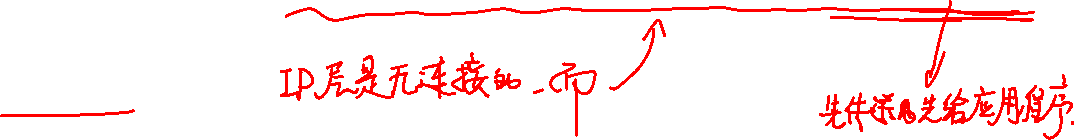 IP层是无连接的.而
先给应用程序.